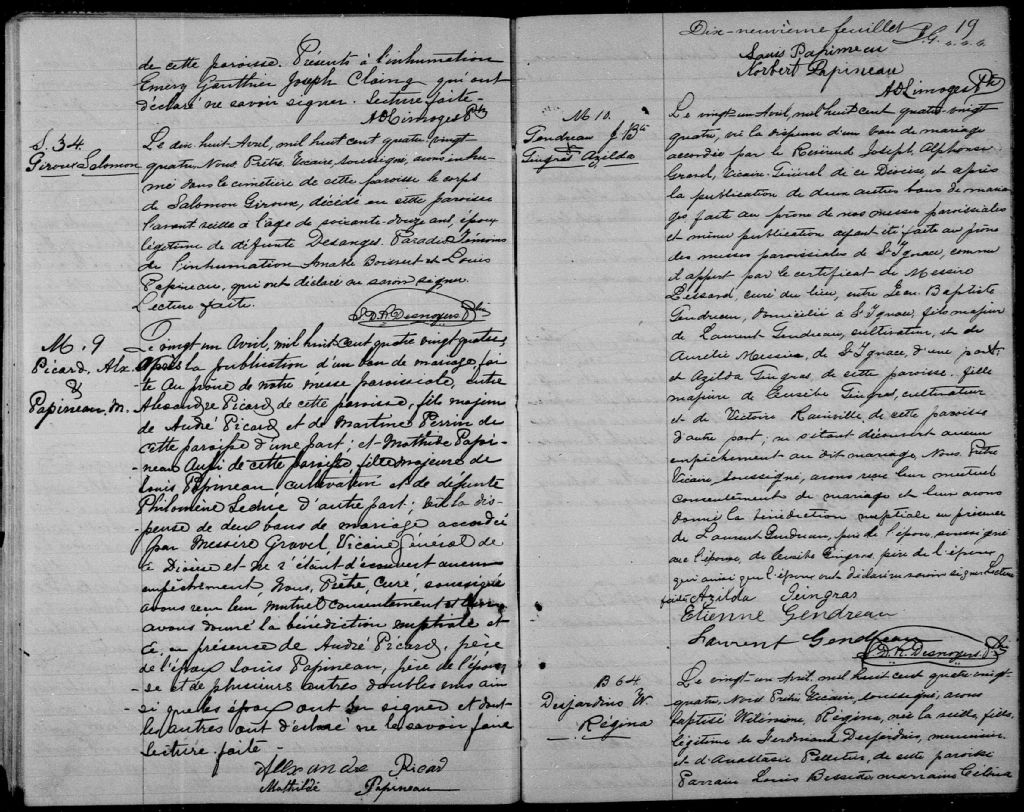 de cette paroisse. Présents à l'inhumation
Emery Gauthier Joseph Claing qui ont
déclaré ne savoir signer. Lecture faite.
AD Limoges Ptr
S. 34.
Giroux Salomon
Le dix huit Avril, mil huit cent quatre vingt
quatre Nous Prêtre Vicaire, soussigné, avons inhu-
mé dans le cimetière de cette paroisse le corps
de Salomon Giroux, décédé en cette paroisse
l'avant veille à l'âge de soixante-douze ans, époux
légitime de défunte Desanges Paradis, Témoins
de l'inhumation Amable Boisvert et Louis
Papineau, qui ont déclaré ne savoir signer.
Lecture faite.
J. D. H. Desnoyers Ptr
M. 9
Picard, Alx.
&
Papineau, M.
Le vingt un Avril, mil huit cent quatre vingt quatre,
Après la publication d'un ban de mariage, fai-
te au prône de notre messe paroissiale, entre
Alexandre Picard de cette paroisse, fils majeur
de André Picard et de Martine Perrin de
cette paroisse d'une part; et Mathilde Papi-
neau aussi de cette paroisse, fille majeure de
Louis Papineau cultivateur et de défunte
Philomène Leduc d'autre part; vu la dis-
pense de deux bans de mariage accordée
par Messire Gravel, Vicaire Général de
ce Diocèse et ne s'étant découvert aucun
empêchement, Nous, Prêtre, Curé, soussigné
avons reçu leur mutuel consentement et leur
avons donné la bénédiction nuptiale et
ce, en présence de André Picard, père
de l'époux Louis Papineau, père de l'épou-
se et de plusieurs autres
si que les époux ont signé et dont
les autres ont déclaré ne le savoir faire
Lecture faite.
Alexandre Picard
Mathilde Papineau
Dix-neuvième feuillet P.G. 19
Louis Papineau
Norbert Papineau
AD Limoges Ptr
M 10.
Gendreau J. Bte
&
Gingras Azilda
Le vingt-un Avril, mil huit cent quatre-vingt
quatre, vu la dispense d'un ban de mariage
accordée par le Révérend Joseph Alphonse
Gravel, Vicaire-Général de ce Diocèse, et après
la publication de deux autres bans de maria
ges faite au prône de nos messes paroissiales
et même publication ayant été faite au prône
des messes paroissiales de St Ignace, comme
il appert par le certificat de Messire
curé du lieu, entre Jean Baptiste
Gendreau, domicilié à St Ignace, fils majeur
de Laurent Gendreau, cultivateur, et de
Aurélie Messier, de St Ignace, d'une part;
et Azilda Gingras, de cette paroisse, fille
majeure de Eusèbe Gingras, cultivateur
et de Victoire Rainville, de cette paroisse
d'autre part; ne s'étant découvert aucun
empêchement au dit mariage, Nous, Prêtre
Vicaire, soussigné, avons reçu leur mutuel
consentement de mariage et leur avons
donné la bénédiction nuptiale en présence
de Laurent Gendreau, père de l'époux, soussigné
avec l'épouse, de Eusèbe Gingras, père de l'épouse
qui ainsi que l'époux ont déclaré ne savoir signer Lecture
faite Azilda Gingras
Etienne Gendreau
Laurent Gendreau
J. D. H. Desnoyers Ptr
B 64
Desjardins W.
Régina
Le vingt-un Avril, mil huit cent quatre-vingt-
quatre, Nous Prêtre Vicaire, soussigné, avons
baptisé Wilimine, Régina, née la veille, fille
légitime de Ferdinand Desjardins, menuisier
et d'Anastasie Pelletier, de cette paroisse
Parrain Louis Bessette, marraine Célina